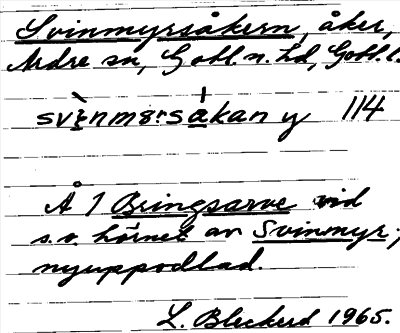 Svinmyrsåkern, åker,
Ardre sn, Gotl. n. hd, Gotl. l.
svìnmərsåkan y 114.
Å 1 Bringsarve vid
s.v. hörnet av Svinmyr;
nyuppodlad.
L. Bleckert 1965.